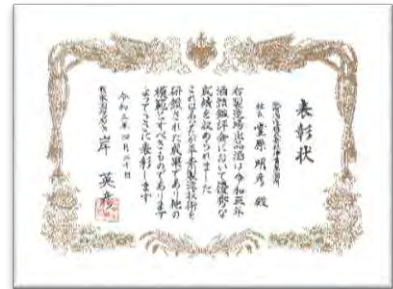 表彰状
社長 室原明彦 殿
右製造場出品酒は令和三年
酒類鑑評会において優秀な
成績を収められました
これは貴下が平素製造技術を
研鑽された成果であり他の
模範とすべきものであります
よってここに表彰します
令和三年四月二十日
岸 英彦